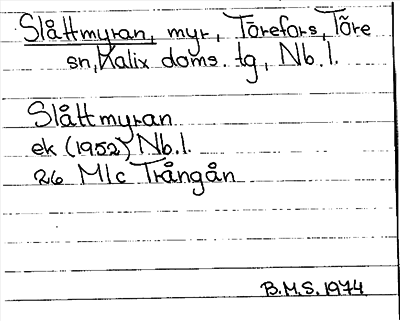 Slåttmyran, myr, Törefors, Töre
sn, Kalix doms. tg, Nb. l.
Slåttmyran
ek (1952) Nb. l.
26 M1c Trångån
B.M.S. 1974